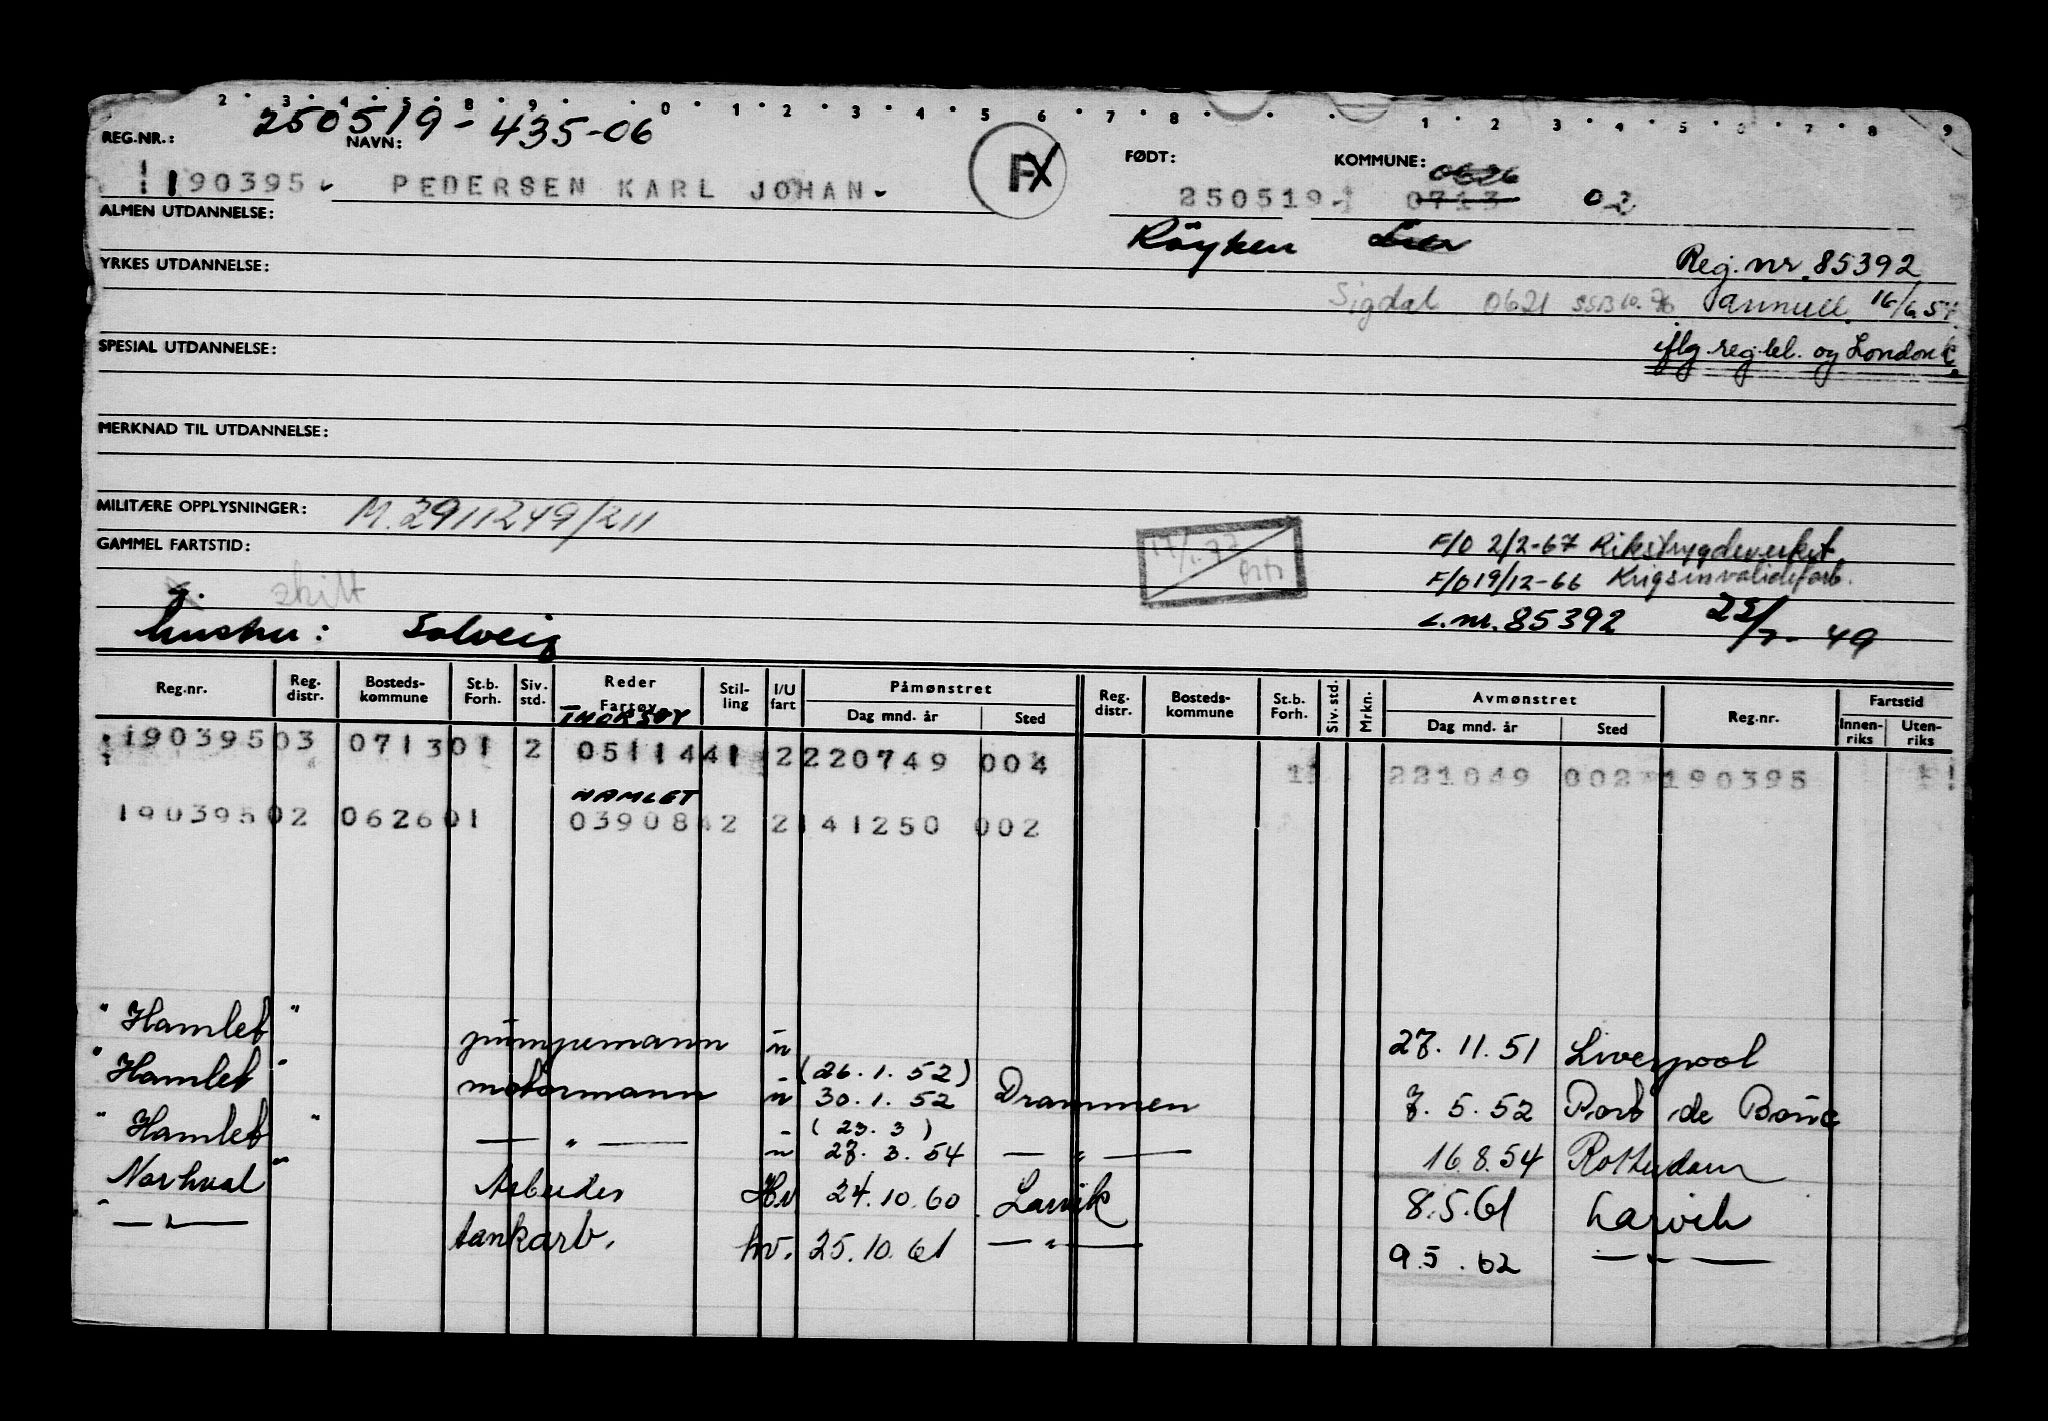 2 3 4 5 8 9 0 1 2 3 4 5 6 7 8 1 2 3 4 5 6 7 8 9
250519-435-06
REG.NR.: NAVN: FØDT: KOMMUNE: 0626
190395 PEDERSEN KARL JOHAN FX 250519 0713 02
ALMEN UTDANNELSE:
Röyken Lier
Reg. nr. 85392
YRKES UTDANNELSE:
Sigdal 0621 annull. 16/6 54
SPESIAL UTDANNELSE: iflg. reg.tel. og London
MERKNAD TIL UTDANNELSE:
MILITÆRE OPPLYSNINGER: M.2911249/211
GAMMEL FARTSTID:
F/O 2/2-67 Rikstrygdeverket
F/O 19/12-66 Krigsinvalideforb.
skilt
L.nr. 85392 25/7-49
hustru: Solveig
Reg.nr. Reg. distr. Bosteds-kommune St.b. Forh. Siv. std. Reder Fartøy Stil-ling I/U fart Påmønstret Dag mnd. år Sted Reg. distr. Bosteds-kommune St.b. Forh. Siv. std. Mrkn. Avmønstret Dag mnd. år Sted Reg.nr. Fartstid Innen-riks Uten-riks
THORSØY
190395 03 0713 01 2 05114 41 2 220749 004 221049 002 190395
HAMLET
190395 02 0626 01 03908 42 2 141250 002
"Hamlet" pumpemann u 27. 11. 51 Liverpool
(26. 1. 52)
"Hamlet" motormann u 30. 1. 52 Drammen 7. 5. 52 Port de Bouc
(23. 3)
"Hamlet" — " — u 27. 3. 54 — " — 16. 8. 54 Rotterdam
"Norhval" Arbeider Hv 24. 10. 60 Larvik 8. 5. 61 Larvik
— " — tankarb. hv. 25. 10. 61 — " — 9. 5. 62 — " —